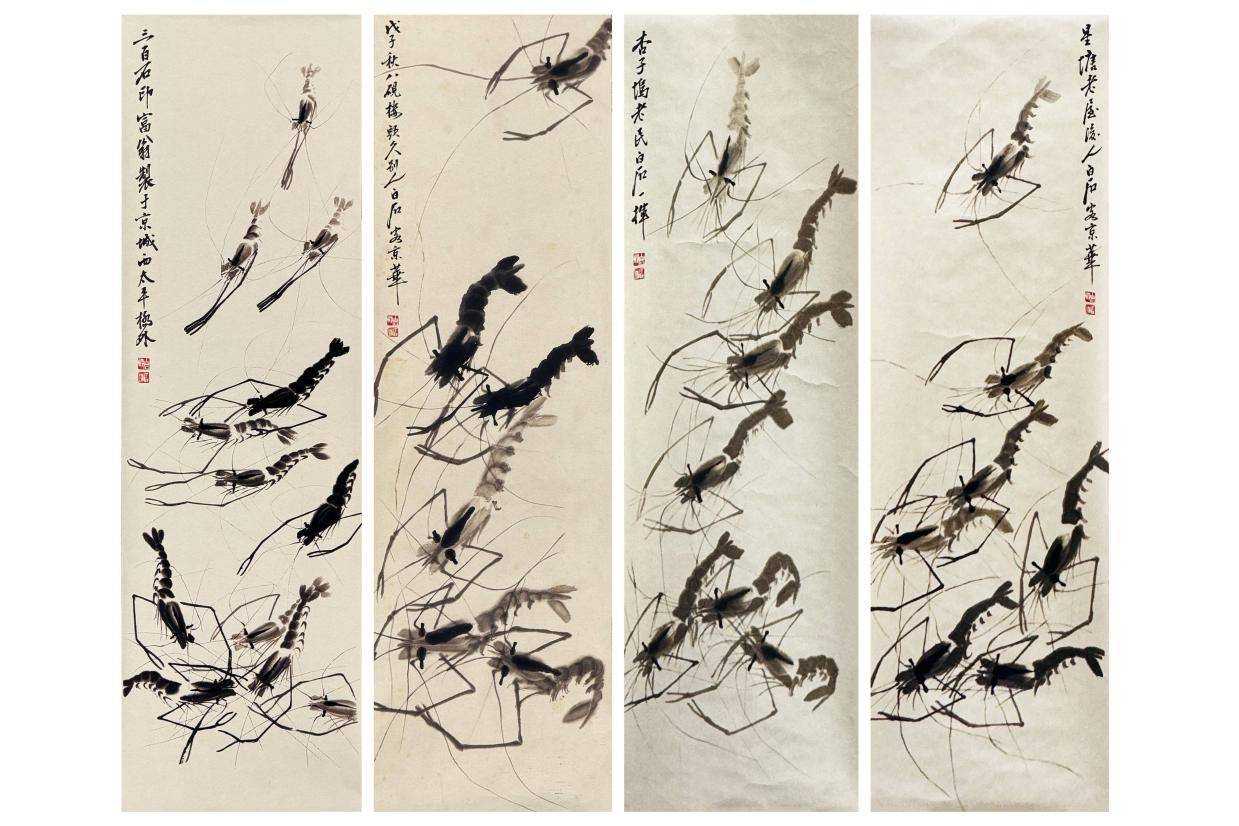 三百石印富翁製于京城西太平橋外
戊子秋八硯樓頭久别人白石客京華
杏子塢老民白石一揮
星塘老屋後人白石客京華